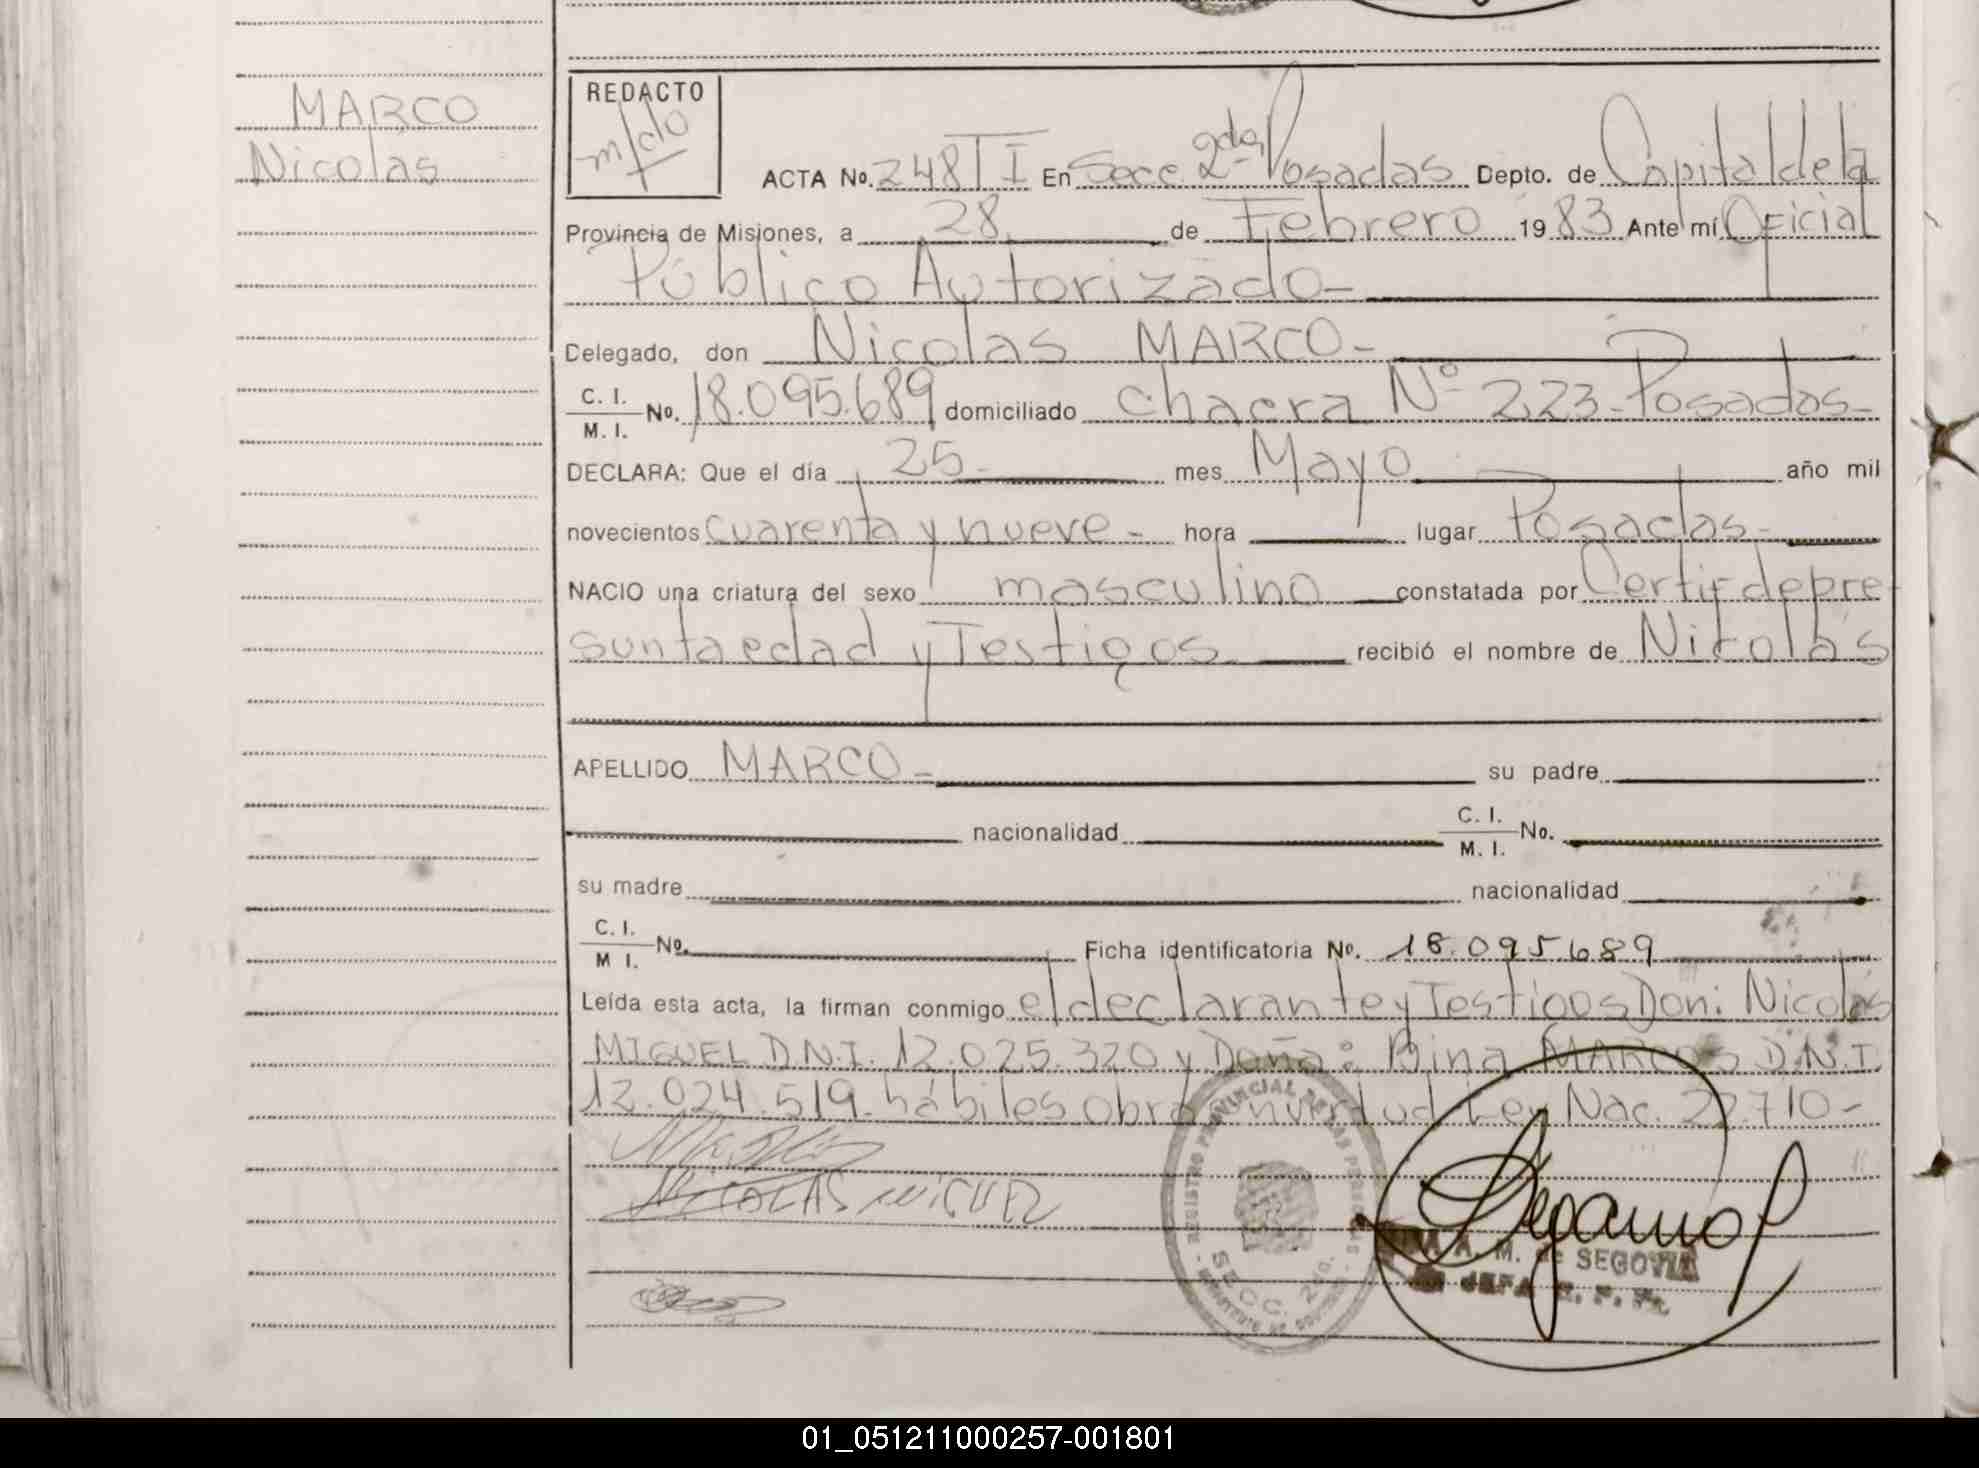 MARCO
Nicolás
REDACTO
ACTA No. 248 T I En Secc 2da. Posadas Depto. de Capital de la
Provincia de Misiones, a 28 de Febrero 19 83 Ante mí Oficial
Público Autorizado-
Delegado, don Nicolas MARCO-
C. I.
M. I. No. 18.095.689 domiciliado chacra Nº 223-Posadas-
DECLARA: Que el día 25- mes Mayo año mil
novecientos cuarenta y nueve- hora lugar Posadas-
NACIO una criatura del sexo masculino constatada por Certif de pre
sunta edad y Testigos- recibió el nombre de Nicolás
APELLIDO MARCO- su padre
nacionalidad C. I.
M. I. No.
su madre nacionalidad
C. I.
M I. No. Ficha identificatoria No. 18.095689
Leída esta acta, la firman conmigo el declarante y Testigos Don: Nicolás
MIGUEL D.N.I. 12.025.320 y Doña: MARCOS D.N.I.
12.024.519-hábiles obro en virtud Ley Nac. 22.710-
NICOLAS MIGUEL
REGISTRO PROVINCIAL DE LAS PERSONAS
SECC. 2da.
A. M. de SEGOVIA
JEFA
01_051211000257-001801